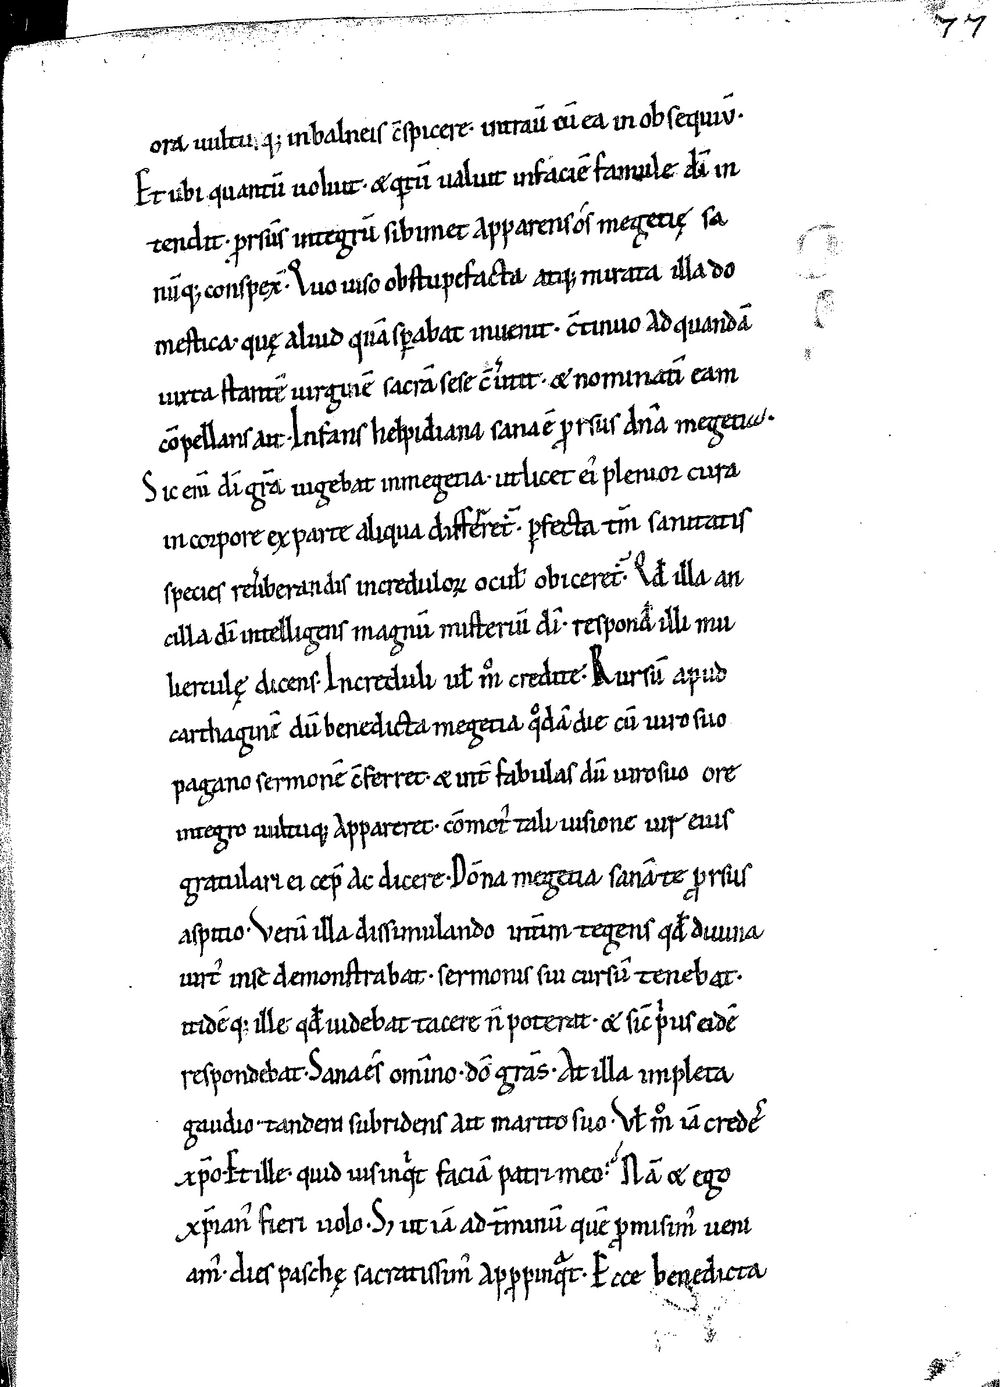 77
ora uultuq; in balneis c̄spicere· intraū cū ea in obsequiū·
Et ubi quantū uoluit· & qͣtū ualuit in faciē famule dī in
tendit· ꝓrsus integrū sibimet apparens os megetię sa
nūq; conspex̄· Quo uiso obstupefacta atq; mirata illa do
mestica· quę aliud quā sꝑabat inuenit· c̄tinuo ad quandā
iuxta stantē uirginē sacrā sese c̄uertit· & nominatī eam
cōpellans ait· Infans helpidiana sana ē ꝓrsus dn̄a megetia·
Sic eni dī gr̄a uigebat in megetia· ut licet ei plenior cura
in corpore ex parte aliqua differret· ꝑfecta tm̄ sanitatis
species reuerberandis increduloꝝ ocul' obiceret· Qd' illa an
cilla dī intelligens magnū misteriū dī· respond' illi mu
lierculę dicens· Increduli ul' m̊ credite· Rursū apud
carthaginē dū benedicta megetia qͦdā die cū uiro suo
pagano sermonē c̄ferret· & int̄ fabulas dū uiro suo ore
integro uultuq; appareret· cōmot' tali uisione uir eius
gratulari ei cep̄ ac dicere· Dōna megetia sanā te ꝓrsus
aspicio· Verū illa dissimulando intim tegens qd' diuina
uirt' in se demonstrabat· sermonis sui cursū tenebat·
itidēq; ille qd' uidebat tacere n̄ poterat· & sic̄ pͥus eidē
respondebat· Sana es omīno· dō grās· At illa impleta
gaudio· tandem subridens ait marito suo· Vl' m̊ iā crede
xp̄o· Et ille· quid uis inqͥt faciā patri meo? Nā & ego
xp̄ian' fieri uolo· S; ut iā ad t̄minū quē ꝓmisim' ueni
am'· dies paschę sacratissim' apꝓpinqͣt· Ecce benedicta